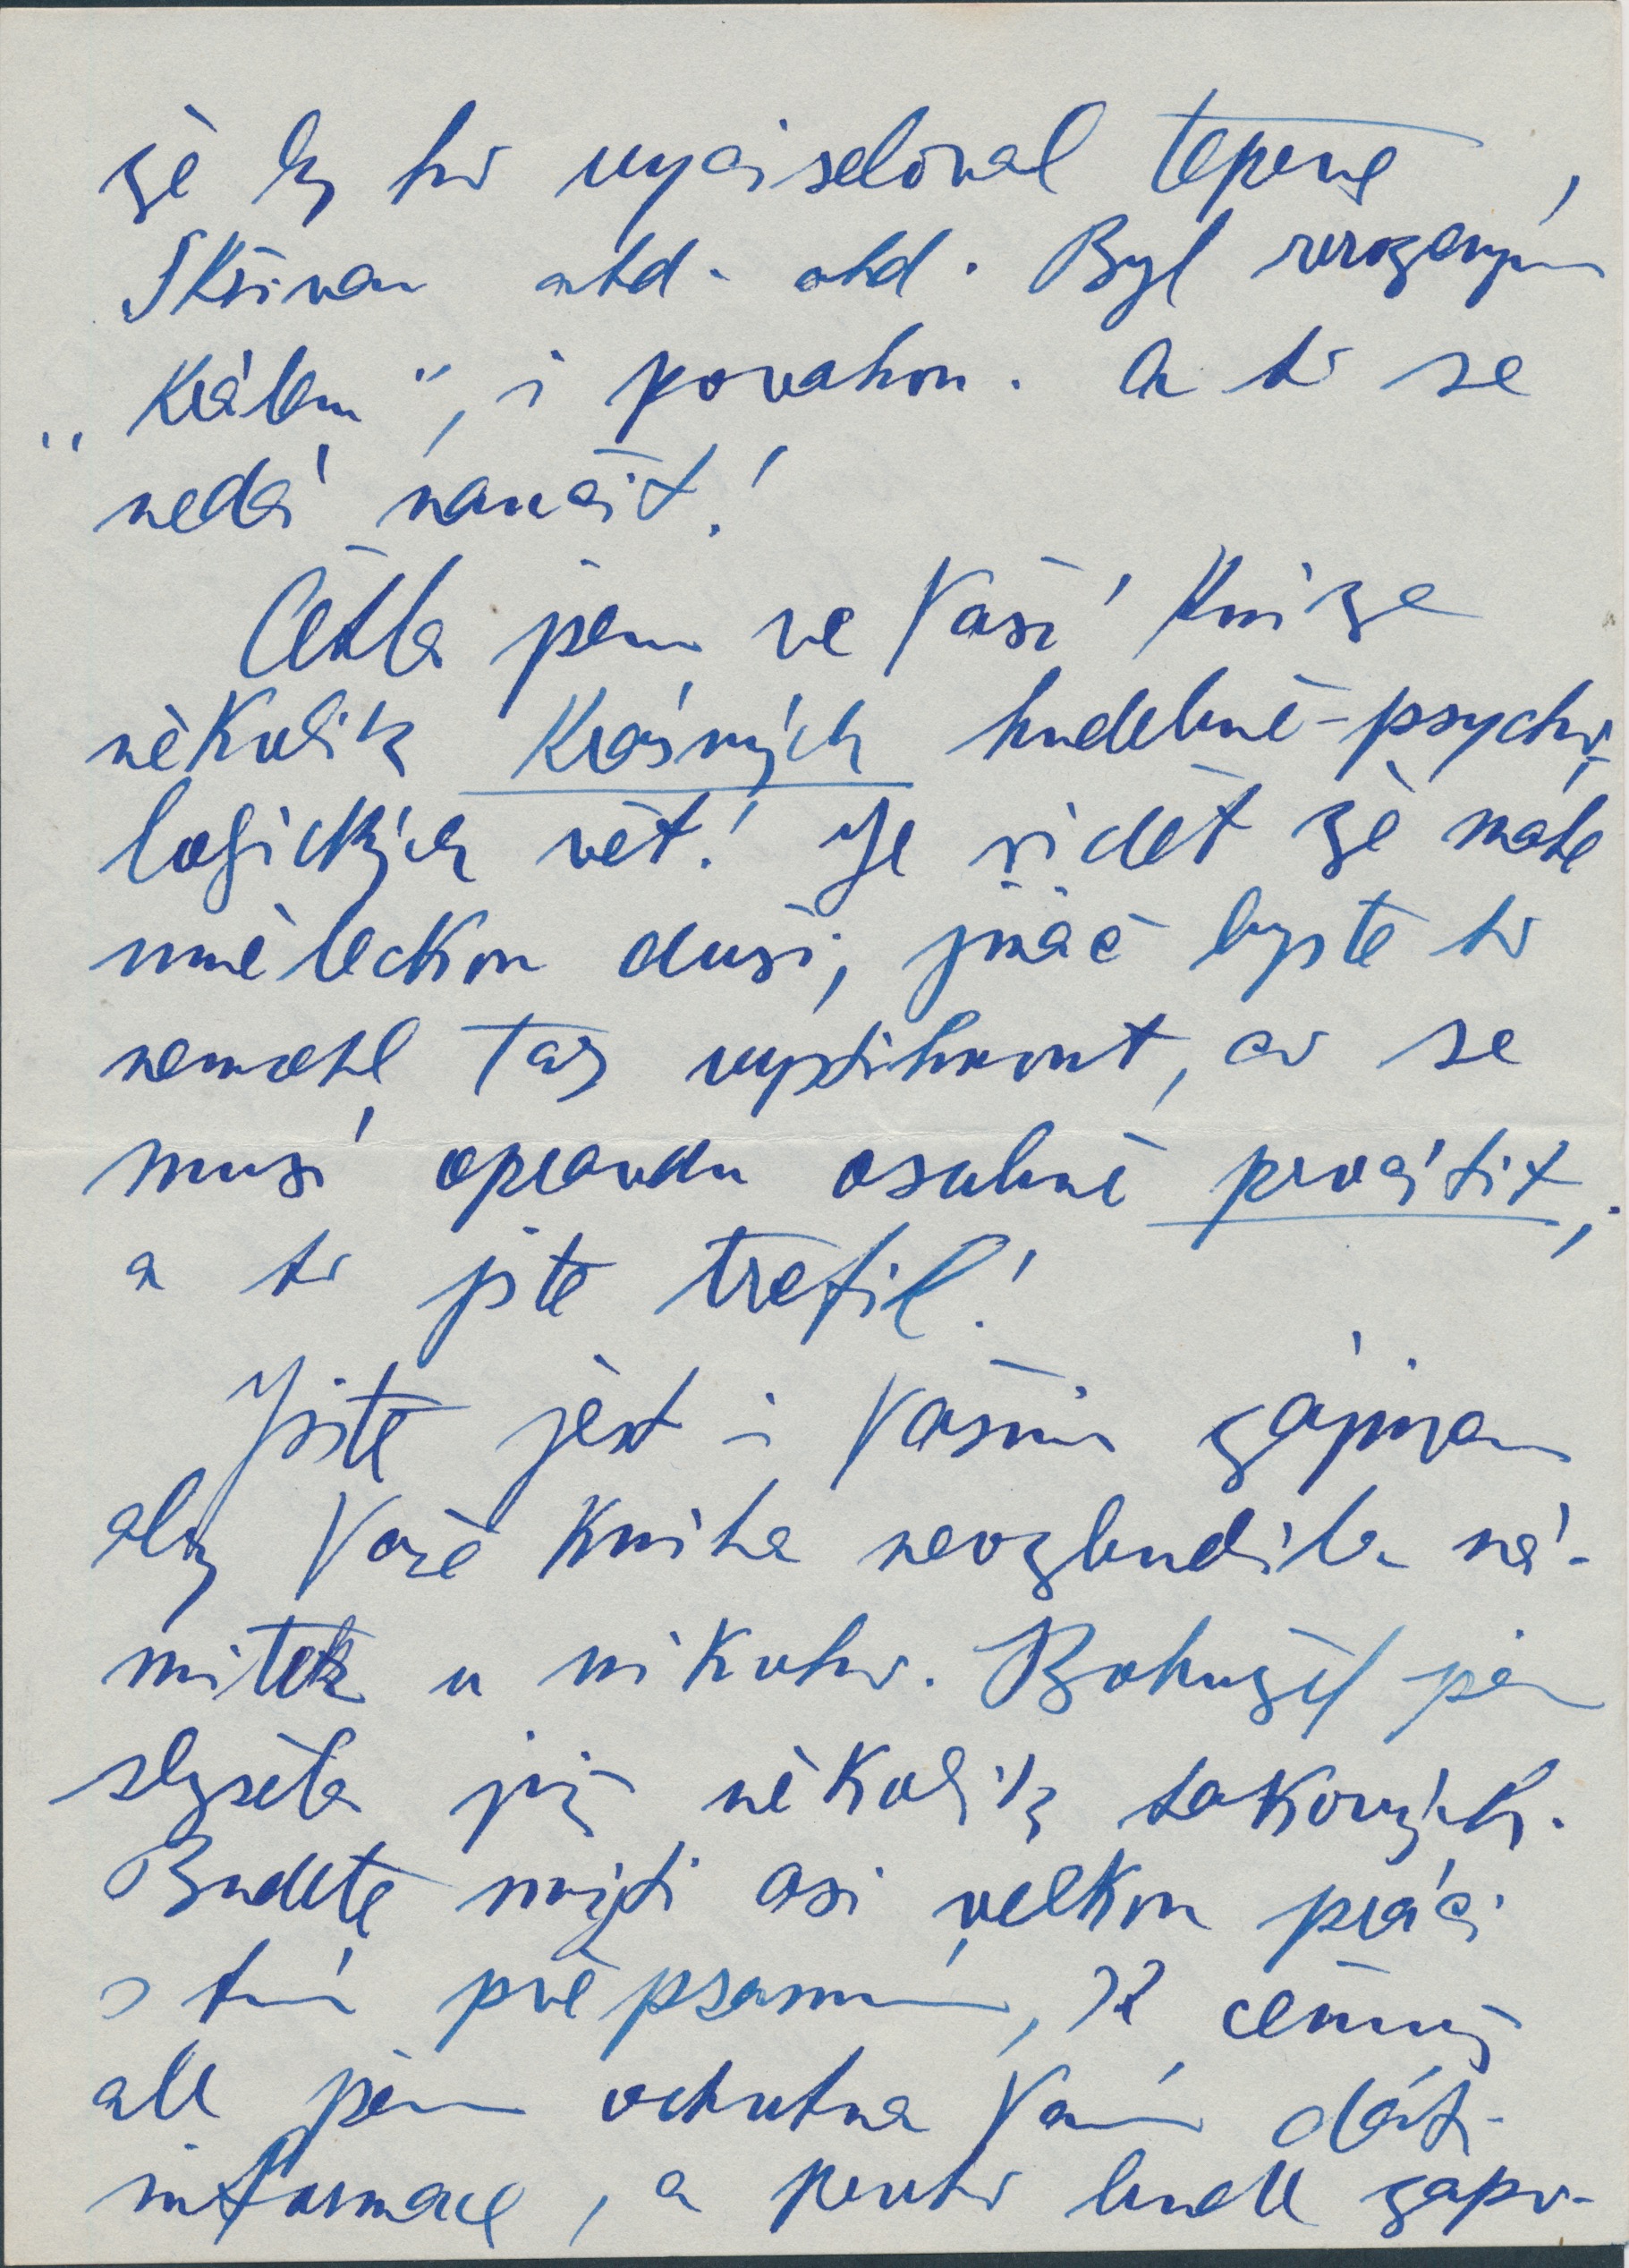 že by ho vyciseloval teprve,
Skřivan atd. atd. Byl rozeným
„Králem“, i povahou. A to se
nedá naučit!
Četla jsem ve Vaší knize
několik krásných hudebně-psycho-
logických vět! Je vidět že máte
uměleckou duši, jináč byste to
nemohl tak vystihnout, co se
musí opravdu osobně procítit,
a to jste trefil!
Jistě jest i Vašim zájmem
aby Vaše kniha nevzbudila ná-
mitek u nikoho. Bohužel jsem
slyšela již několik takových.
Budete míti asi velkou práci
s tím přepsaním, k čemuž
ale jsem ochotna Vám dáti
informace, a proto bude zapo-